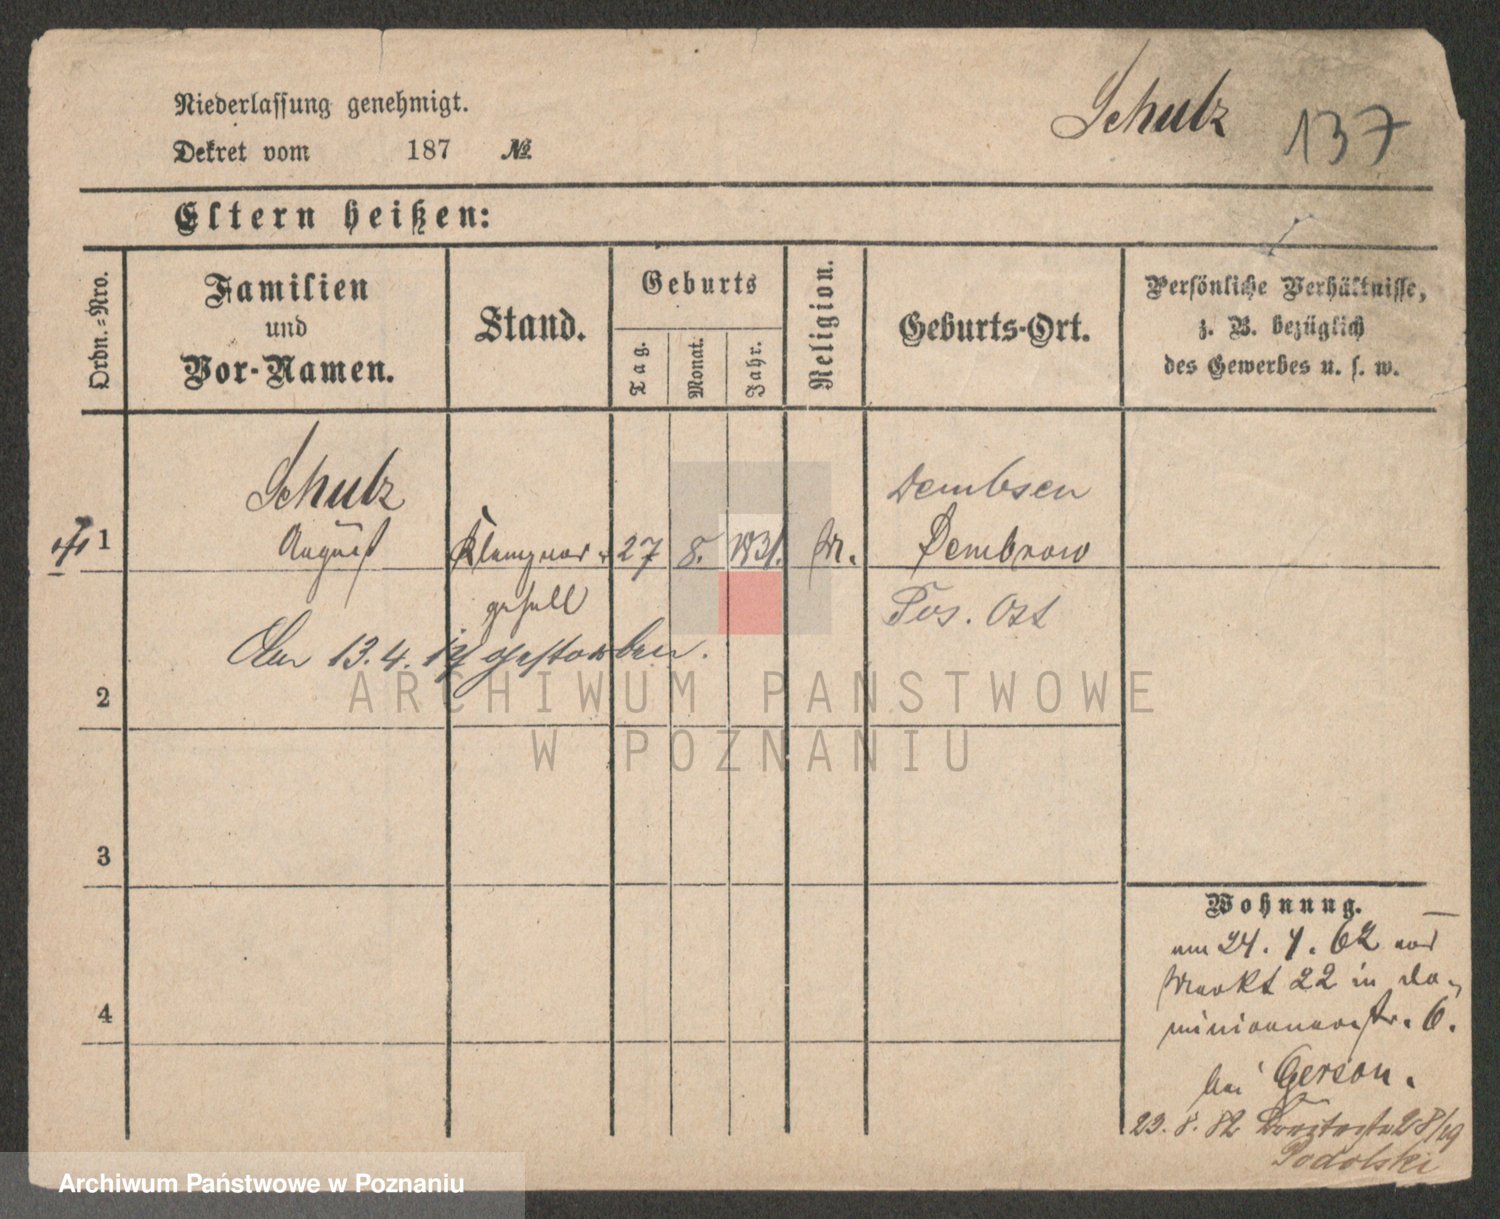 Niederlassung genehmigt.
Dekret vom 187 №
Schulz 137
Eltern heißen:
Ordn.=Nro.
Familien
und
Vor-Namen.
Stand.
Geburts
Tag.
Monat.
Jahr.
Religion.
Geburts-Ort.
Persönliche Verhältnisse,
z. B. bezüglich
des Gewerbes u. s. w.
Schulz
Dembsen
1 August 27 8. 1831. Dembrow
gesell
Pos. Ost
13.4. gestorben.
2
3
4
ARCHIWUM PAŃSTWOWE
W POZNANIU
Wohnung.
am 24. 62
Markt 22 in Do-
minicanerstr. 6.
bei Gerson.
23. 8. 82 28/19
Podolski
Archiwum Państwowe w Poznaniu